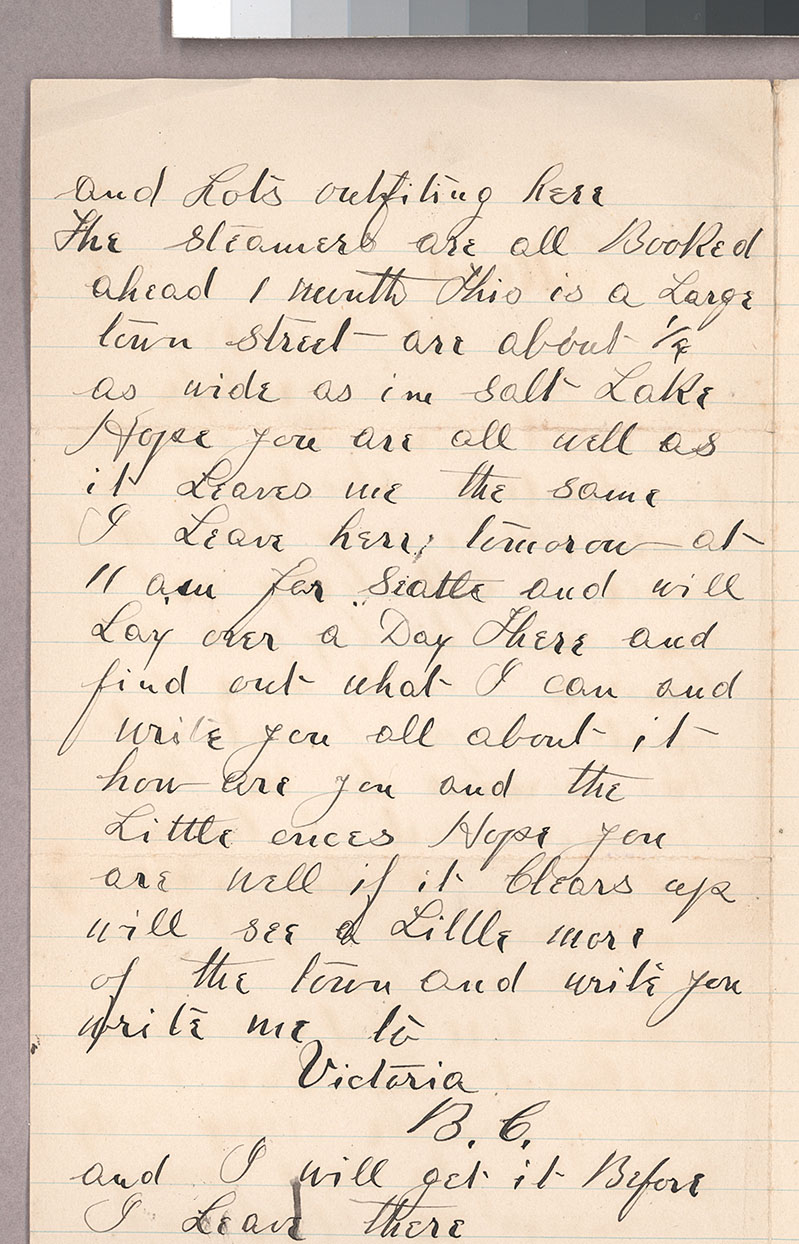 and Lots outfiting here
The steamers are all Booked
ahead 1 month This is a Large
town street are about 1/2
as wide as in Salt Lake
Hope you are all well as
it Leaves me the same
I Leave here; tomorow at
11 am for Seattle and will
Lay over a Day There and
find out what I can and
write you all about it
how are you and the
Little onces Hope you
are well if it Clears up
will see a Little more
of the town and write you
write me to
Victoria
B. C.
and I will get it Before
I Leave there